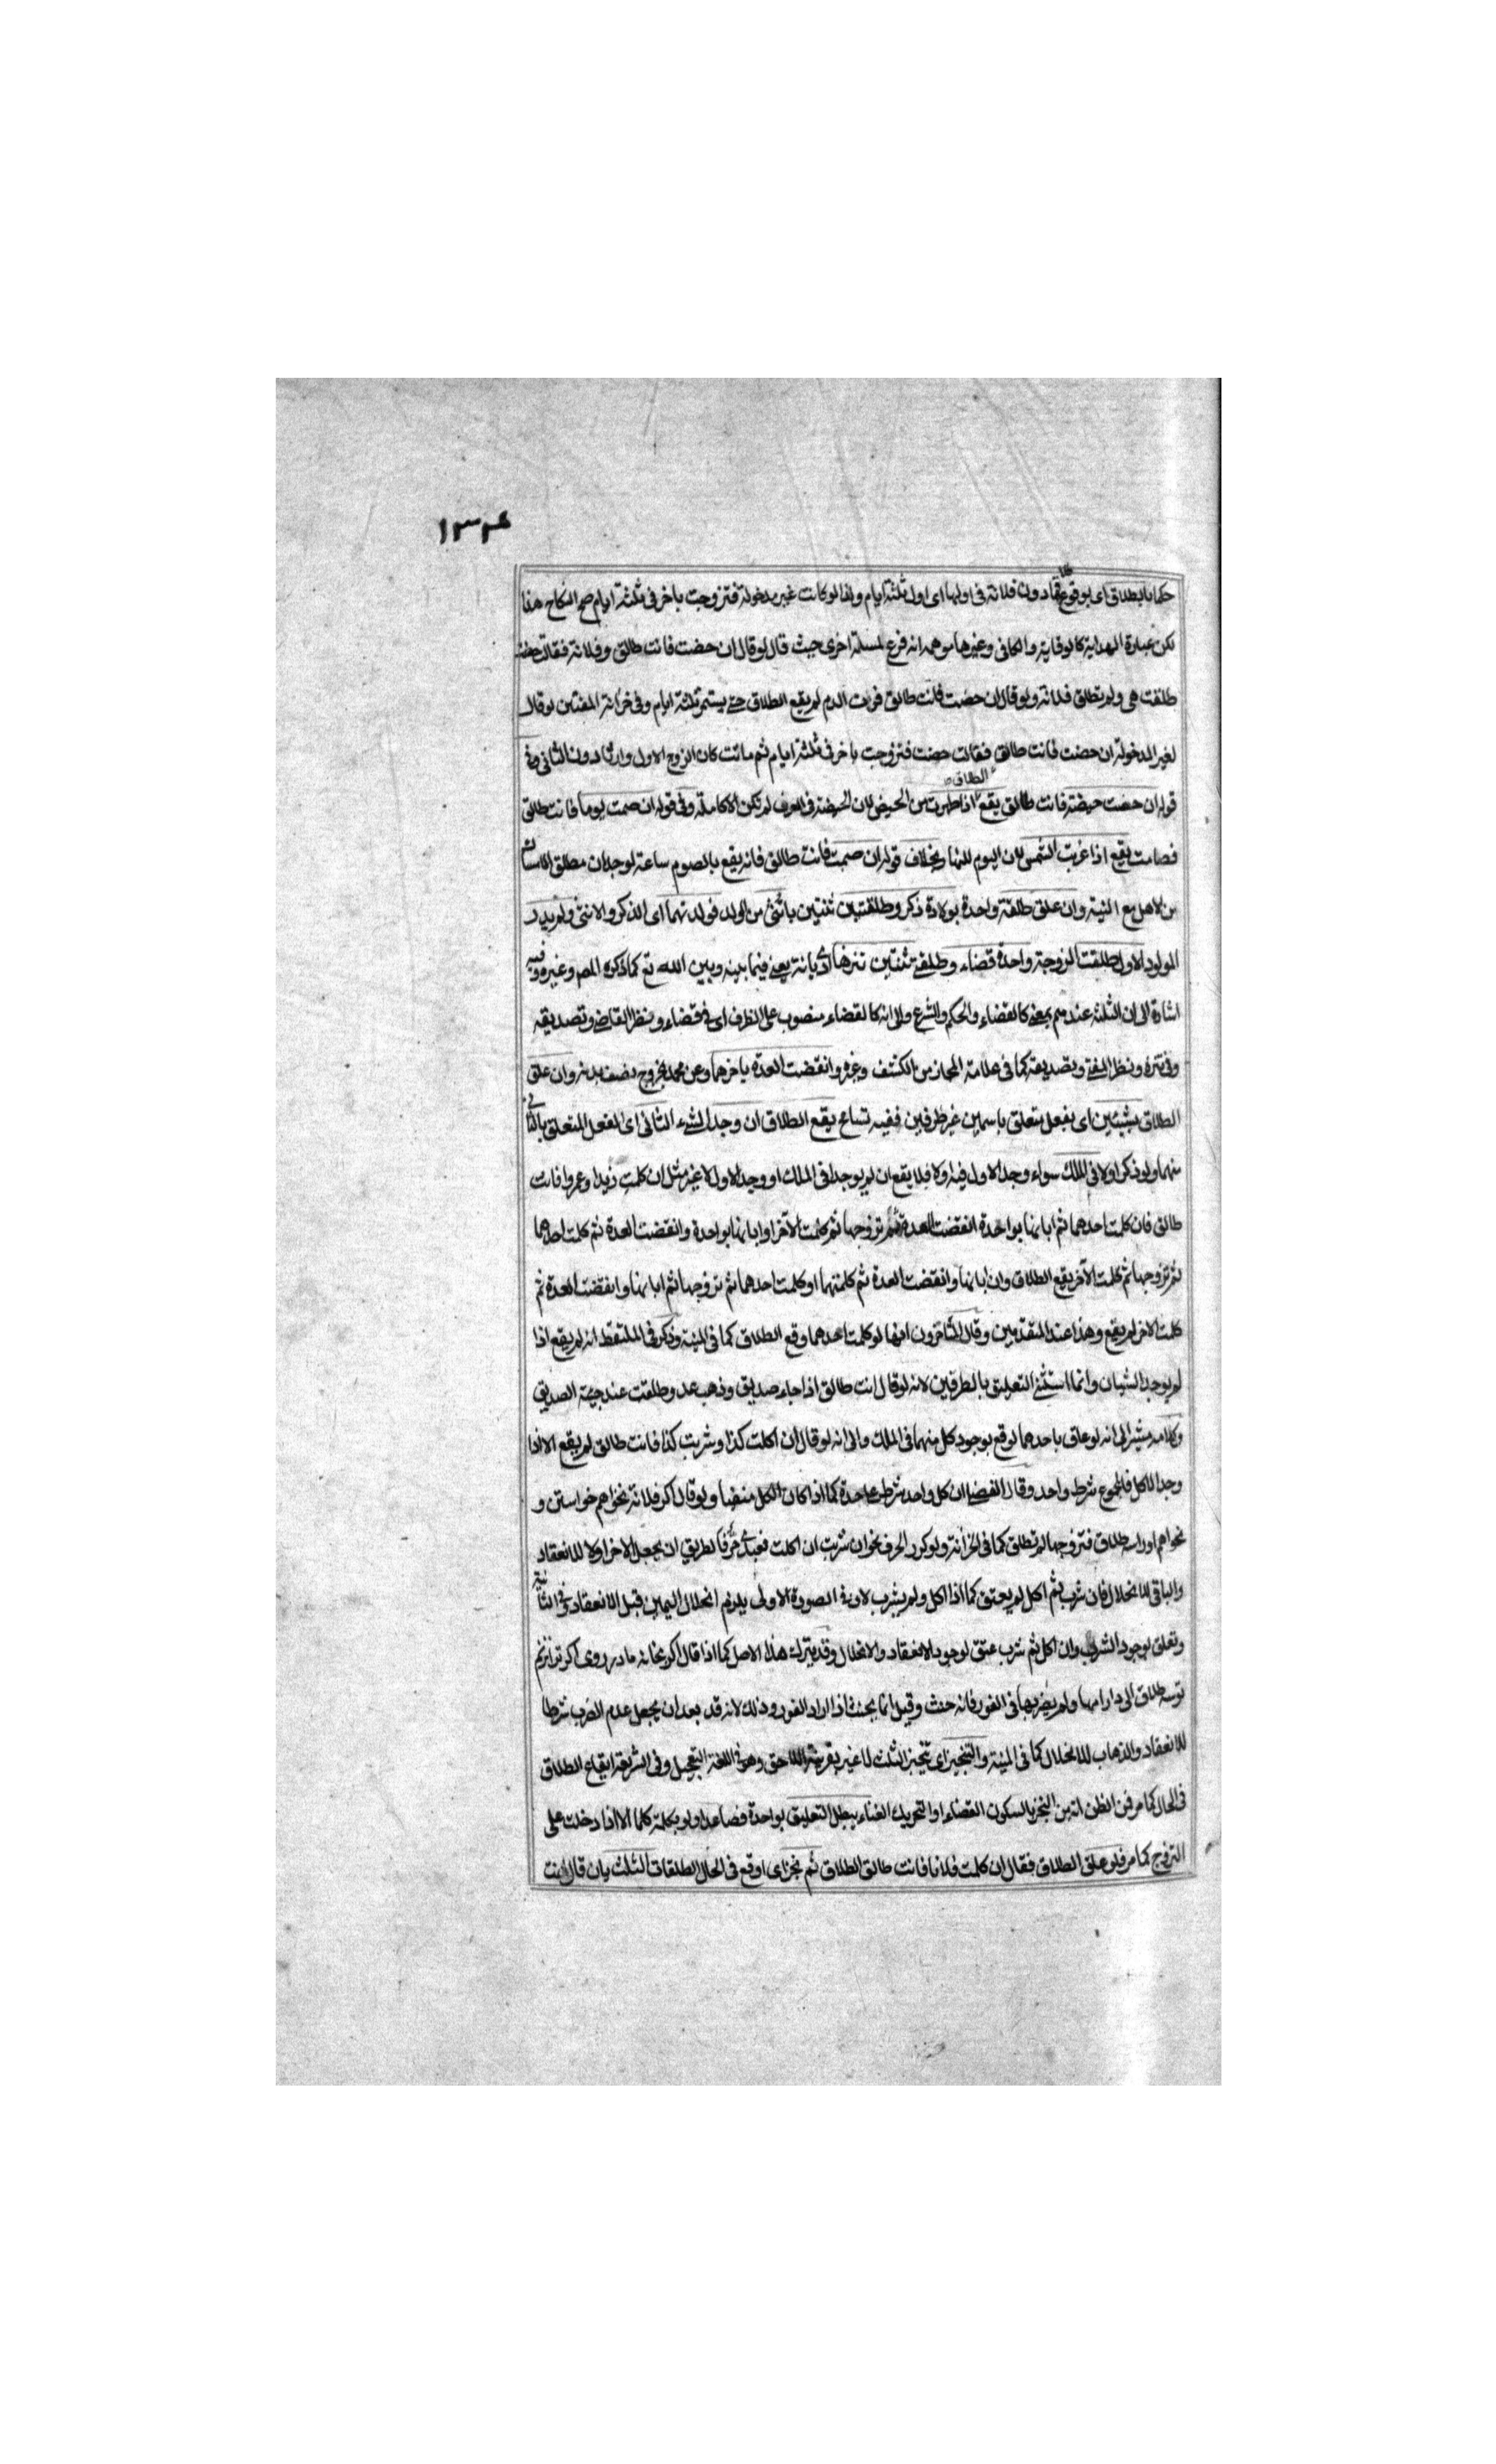 ١٣٣٤
حكما بالطلاق اى بوقوع دون فلانة فى اولها اى اول ثلثة ايام ولذا لو كانت غير مدخولة فتزوجت باخر فى ثلثة ايام صح النكاح هذا
لكن عبارة الهداية كالوقاية والكافى وغيرها موهمة انه فرع لمسئلة اخرى حيث قال لو قال ان حضت فانت طالق وفلانة فقالت حضت
طلقت هى ولم تطلق فلانة ولو قال ان حضت فانت طالق فرات الدم لم يقع الطلاق حتى يستمر ثلثة ايام وفى خزانة المفتين لو قال
لغير المدخولة ان حضت فانت طالق فقالت حضت فتزوجت باخر فى ثلثة ايام ثم ماتت كان الزوج الاول وارثا دون الثانى وفى
قوله ان حضت حيضة فانت طالق يقع الطلاق اذا طهرت من الحيض لان الحيضة فى العرف لم تكن الا كاملة وفى قوله ان صمت يوما فانت طالق
فصامت يقع اذا غربت الشمس لان اليوم للنهار بخلاف قوله ان صمت فانت طالق فانه يقع بالصوم ساعة لوجدان مطلق الامساك
من الاهل مع النية وان علق طلقة واحدة بولادة ذكر وطلقتين ثنتين بانثى من الولد فولدتهما اى الذكر والانثى ولم يدر
المولود الاول طلقت الزوجة واحدة قضاء وطلقت ثنتين تنزها اى ديانة يعنى فيما بينه وبين الله تع كما ذكره المص وغيره وفيه
اشارة الى ان الثلثة عندهم بمعنى كالقضاء والحكم والشرع والى انه كالقضاء منصوب على الظرف اى فى قضاء ونظر القاضى وتصديقه
وفى تنزه ونظر المفتى وتصديقه كما فى علامة المجاز من الكشف وغيره وانقضت العدة باخرهما وعن محمد بخروج نصف بدنه وان علق
الطلاق بشيئين اى بفعل متعلق باسمين غير ظرفين ففيه تسامح يقع الطلاق ان وجد الشىء الثانى اى الفعل المتعلق بالثانى
منهما ولو ذكر اولا فى الملك سواء وجد الاول فيه اولا فلا يقع ان لم يوجدا فى الملك او وجد الاول لا غير مثل ان كلمت زيدا وعمروا فانت
طالق فان كلمت احدهما ثم ابانها بواحدة انقضت العدة ثم تزوجها ثم كلمت الآخر او ابانها بواحدة وانقضت العدة ثم كلمت احدهما
ثم تزوجها ثم كلمت الآخر يقع الطلاق وان ابانها وانقضت العدة ثم كلمتهما او كلمت احدهما ثم تزوجها ثم ابانها وانقضت العدة ثم
كلمت الاخر لم يقع وهذا عند المتقدمين وقال المتاخرون انها لو كلمت احدهما وقع الطلاق كما فى المنية وذكر فى الملتقط انه لم يقع اذا
لم يوجد الشيئان وانما استثنى التعليق بالظرفين لانه لو قال انت طالق اذا جاء صديق وذهب عدو طلقت عند جيئة الصديق
وكلامه مشير الى انه لو علق باحدهما لوقع بوجود كل منهما فى الملك والى انه لو قال ان اكلت كذا وشربت كذا فانت طالق لم يقع الا اذا
وجد الكل فالمجموع شرط واحد وقال الفضلى ان كل واحد شرط على حدة كما اذا كان الكل منفيا ولو قال اكر فلانة نخواهم خواستن و
نخواهم او را سه طلاق فتزوجها لم تطلق كما فى الخزانة ولو كرر الحرف نحو ان شربت ان اكلت فعبدى حر فالطريق ان يجعل الاخر اولا للانعقاد
والباقى للانحلال فان شرب ثم اكل لم يعتق كما اذا اكل ولم يشرب لان فى الصورة الاولى يلزم انحلال اليمين قبل الانعقاد وفى الثانية
وتعلق بوجود الشرب وان اكل ثم شرب عتق لوجود الانعقاد والانحلال وقد يترك هذا الاصل كما اذا قال اكر بخانه مادر روى اكر ترا نزنم
تو سه طلاق الى دار امها ولم يضربها فى الفور فانه حنث وقيل انما يحنث اذا اراد الفور وذلك لانه قد بعد ان يجعل عدم الضرب شرطا
للانعقاد والذهاب للانحلال كما فى المنية والتنجيز اى تنجيز الثلث لا غير بقرينة اللاحق وهو فى اللغة التعجيل وفى الشريعة ايقاع الطلاق
فى الحال كما مر فمن الظن انه من النجز بالسكون القضاء او التحريك الفناء يبطل التعليق بواحدة فصاعدا ولو بكلمة كلما الا اذا دخلت على
التزوج كما مر فلو علق الطلاق فقال ان كلمت فلانا فانت طالق الطلاق ثم نجز اى اوقع فى الحال الطلقات الثلث بان قال انت